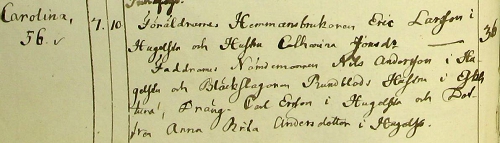 Carolina,
56.
7. 10 Föräldrarne Hemmansbrukaren Eric Larsson i
Hugelsta och Hustru Catharina Jonsdr 36
Faddrarne Nämdemannen Nils Andersson i Hu-
gelsta och Bläckslagaren Rundblads Hustru i Eskils
tuna, Dräng Carl Ersson i Hugelsta och Dot-
tren Anna Brita Andersdotter i Hugelsta.